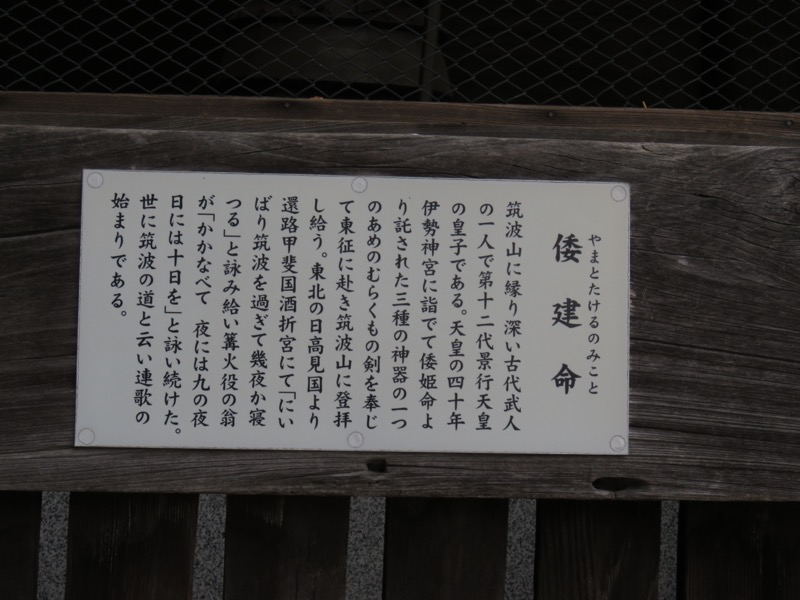 やまとたけるのみこと
倭建命
筑波山に縁り深い古代武人
の一人で第十二代景行天皇
の皇子である。天皇の四十年
伊勢神宮に詣でて倭姫命よ
り託された三種の神器の一つ
のあめのむらくもの剣を奉じ
て東征に赴き筑波山に登拝
し給う。東北の日高見国より
還路甲斐国酒折宮にて「にい
ばり筑波を過ぎて幾夜か寝
つる」と詠み給い篝火役の翁
が「かかなべて　夜には九の夜
日には十日を」と詠い続けた。
世に筑波の道と云い連歌の
始まりである。